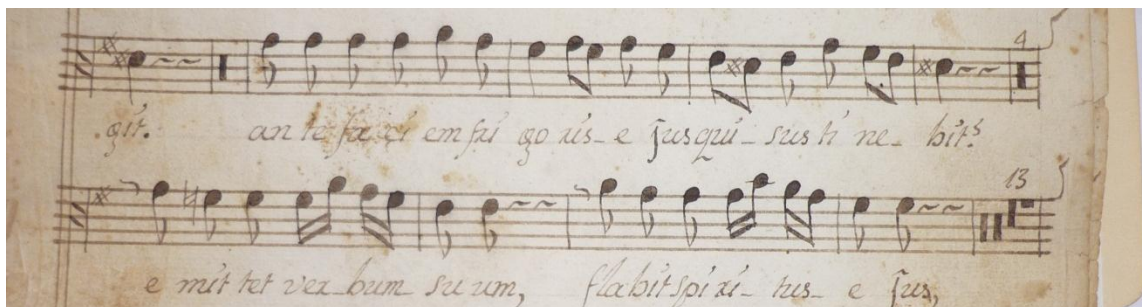 4
git. an te fa ci em fri go ris- e jus qui- sus ti ne- bit?
13
e mit tet ver-bum su um, flabit spi ri- tus- e jus,